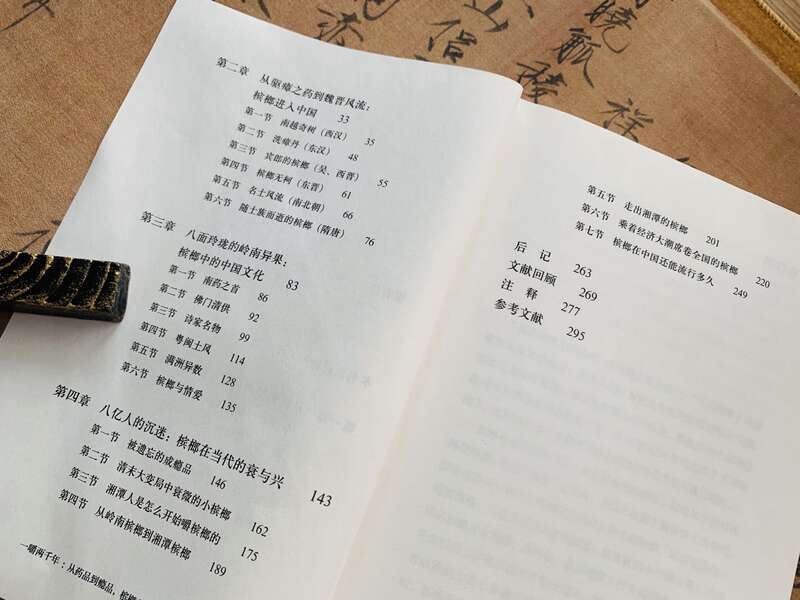 第二章 从驱瘴之药到魏晋风流：
槟榔进入中国 33
第一节 南越奇树（西汉） 35
第二节 洗瘴丹（东汉） 48
第三节 宾郎的槟榔（吴、西晋） 55
第四节 槟榔无柯（东晋） 61
第五节 名士风流（南北朝） 66
第六节 随士族而逝的槟榔（隋唐） 76
第三章 八面玲珑的岭南异果：
槟榔中的中国文化 83
第一节 南药之首 86
第二节 佛门清供 92
第三节 诗家名物 99
第四节 粤闽土风 114
第五节 满洲异数 128
第六节 槟榔与情爱 135
第四章 八亿人的沉迷：槟榔在当代的衰与兴 143
第一节 被遗忘的成瘾品 146
第二节 清末大变局中衰微的小槟榔 162
第三节 湘潭人是怎么开始嚼槟榔的 175
第四节 从岭南槟榔到湘潭槟榔 189
一嚼两千年：从药品到瘾品，槟榔
第五节 走出湘潭的槟榔 201
第六节 乘着经济大潮席卷全国的槟榔 220
第七节 槟榔在中国还能流行多久 249
后记 263
文献回顾 269
注释 277
参考文献 295
晓
觚
稜
祥
山
侣